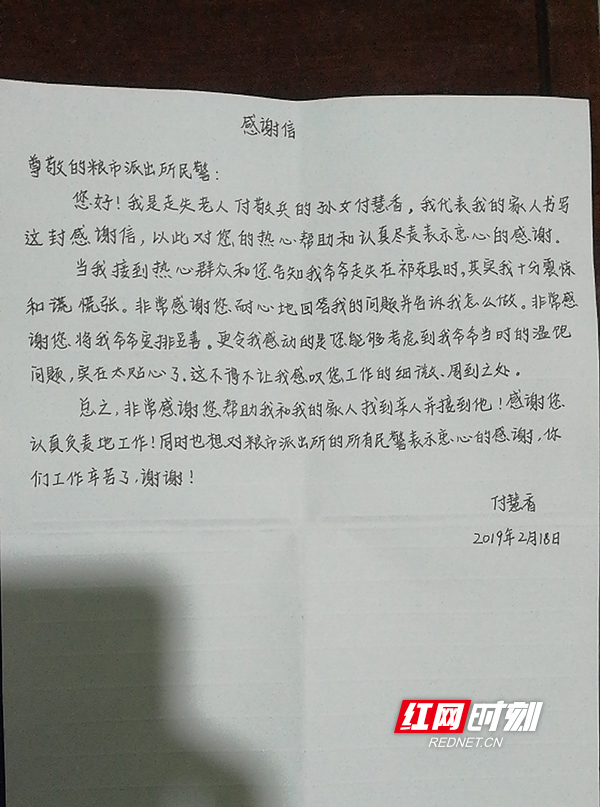 感谢信
尊敬的粮市派出所民警:
您好!我是走失老人付敬兵的孙女付慧香,我代表我的家人书写
这封感谢信,以此对您的热心帮助和认真尽责表示衷心的感谢。
当我接到热心群众和您告知我爷爷走失在祁东县时,其实我十分震惊
和谎慌张。非常感谢您耐心地回答我的问题并告诉我怎么做。非常感
谢您将我爷爷安排妥善。更令我感动的是您能够考虑到我爷爷当时的温饱
问题,实在太贴心了,这不得不让我感叹您工作的细微、周到之处。
总之,非常感谢您帮助我和我的家人找到亲人并接到他!感谢您
认真负责地工作!同时也想对粮市派出所的所有民警表示衷心的感谢,你
们工作辛苦了,谢谢!
付慧香
2019年2月18日
红网时刻
REDNET.CN